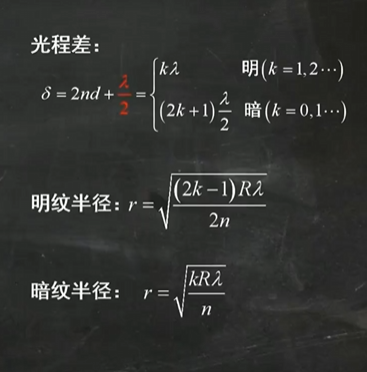 光程差：
δ = 2nd + λ/2 = { kλ 明(k = 1,2⋯)
(2k+1) λ/2 暗(k = 0,1⋯)
明纹半径：r = √((2k−1)Rλ / 2n)
暗纹半径： r = √(kRλ / n)